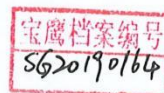 宝鹰档案编号
SG20190164